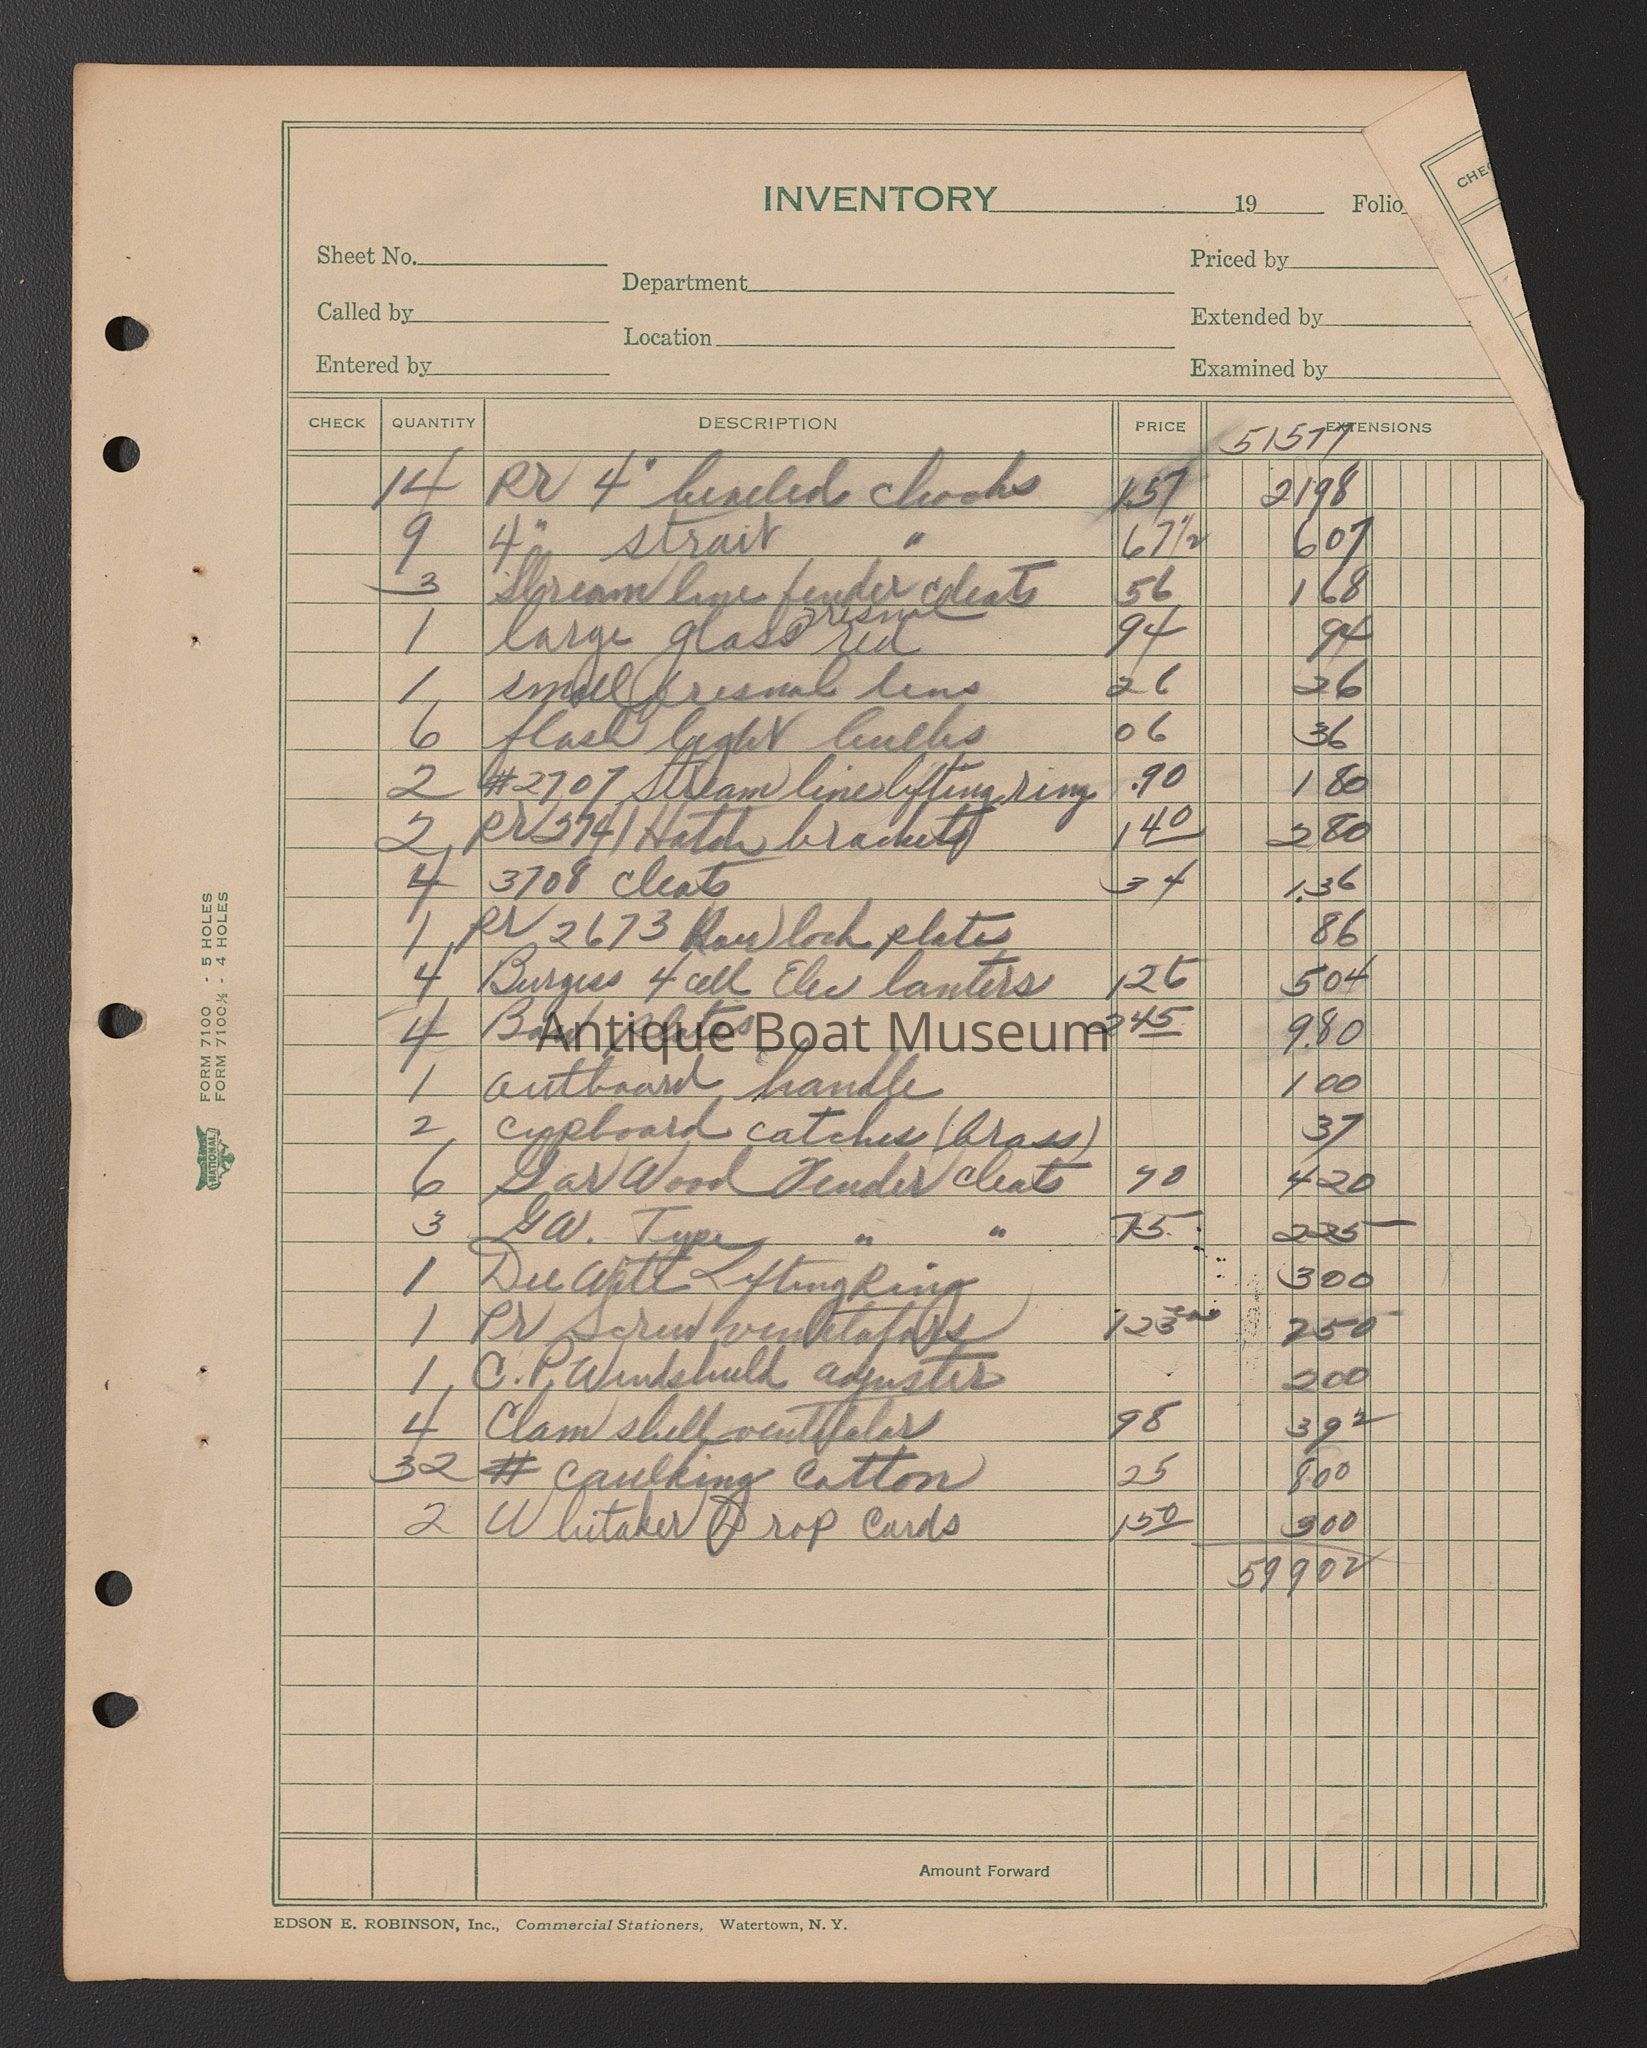 INVENTORY 19 Folio
CHEC
Sheet No.
Priced by
Department
Called by
Extended by
Location
Entered by
Examined by
CHECK QUANTITY DESCRIPTION PRICE EXTENSIONS
51577
14 PR 4" beveled chocks 157 2198
9 4" strait " 67 1/2 607
3 Stream line fender cleats 56 168
1 large glass fresnal red 94 94
1 small fresnal lens 26 26
6 flash light bulbs 06 36
2 #2707 Stream line lifting ring .90 180
2 PR 3741 Hatch brackets 140 280
4 3708 cleats 34 1.36
1 PR 2673 Row lock plates 86
4 Burgess 4 cell Elec lanters 126 504
4 Boat plates 245 9.80
Antique Boat Museum
1 outboard handle 100
2 cupboard catches (brass) 37
6 Gar Wood Fender cleats 70 420
3 GW. Type " " 75 225
1 Dee Witt Lifting Ring 300
1 PR Screw ventelators 123 250
1 C.P. Windshield adjuster 200
4 Clam shell ventilator 98 392
32 # caulking cotton 25 800
2 Whitaker Prop Cards 150 300
59902
FORM 7100 - 5 HOLES
FORM 7100 1/4 - 4 HOLES
NATIONAL
Amount Forward
EDSON E. ROBINSON, Inc., Commercial Stationers, Watertown, N. Y.